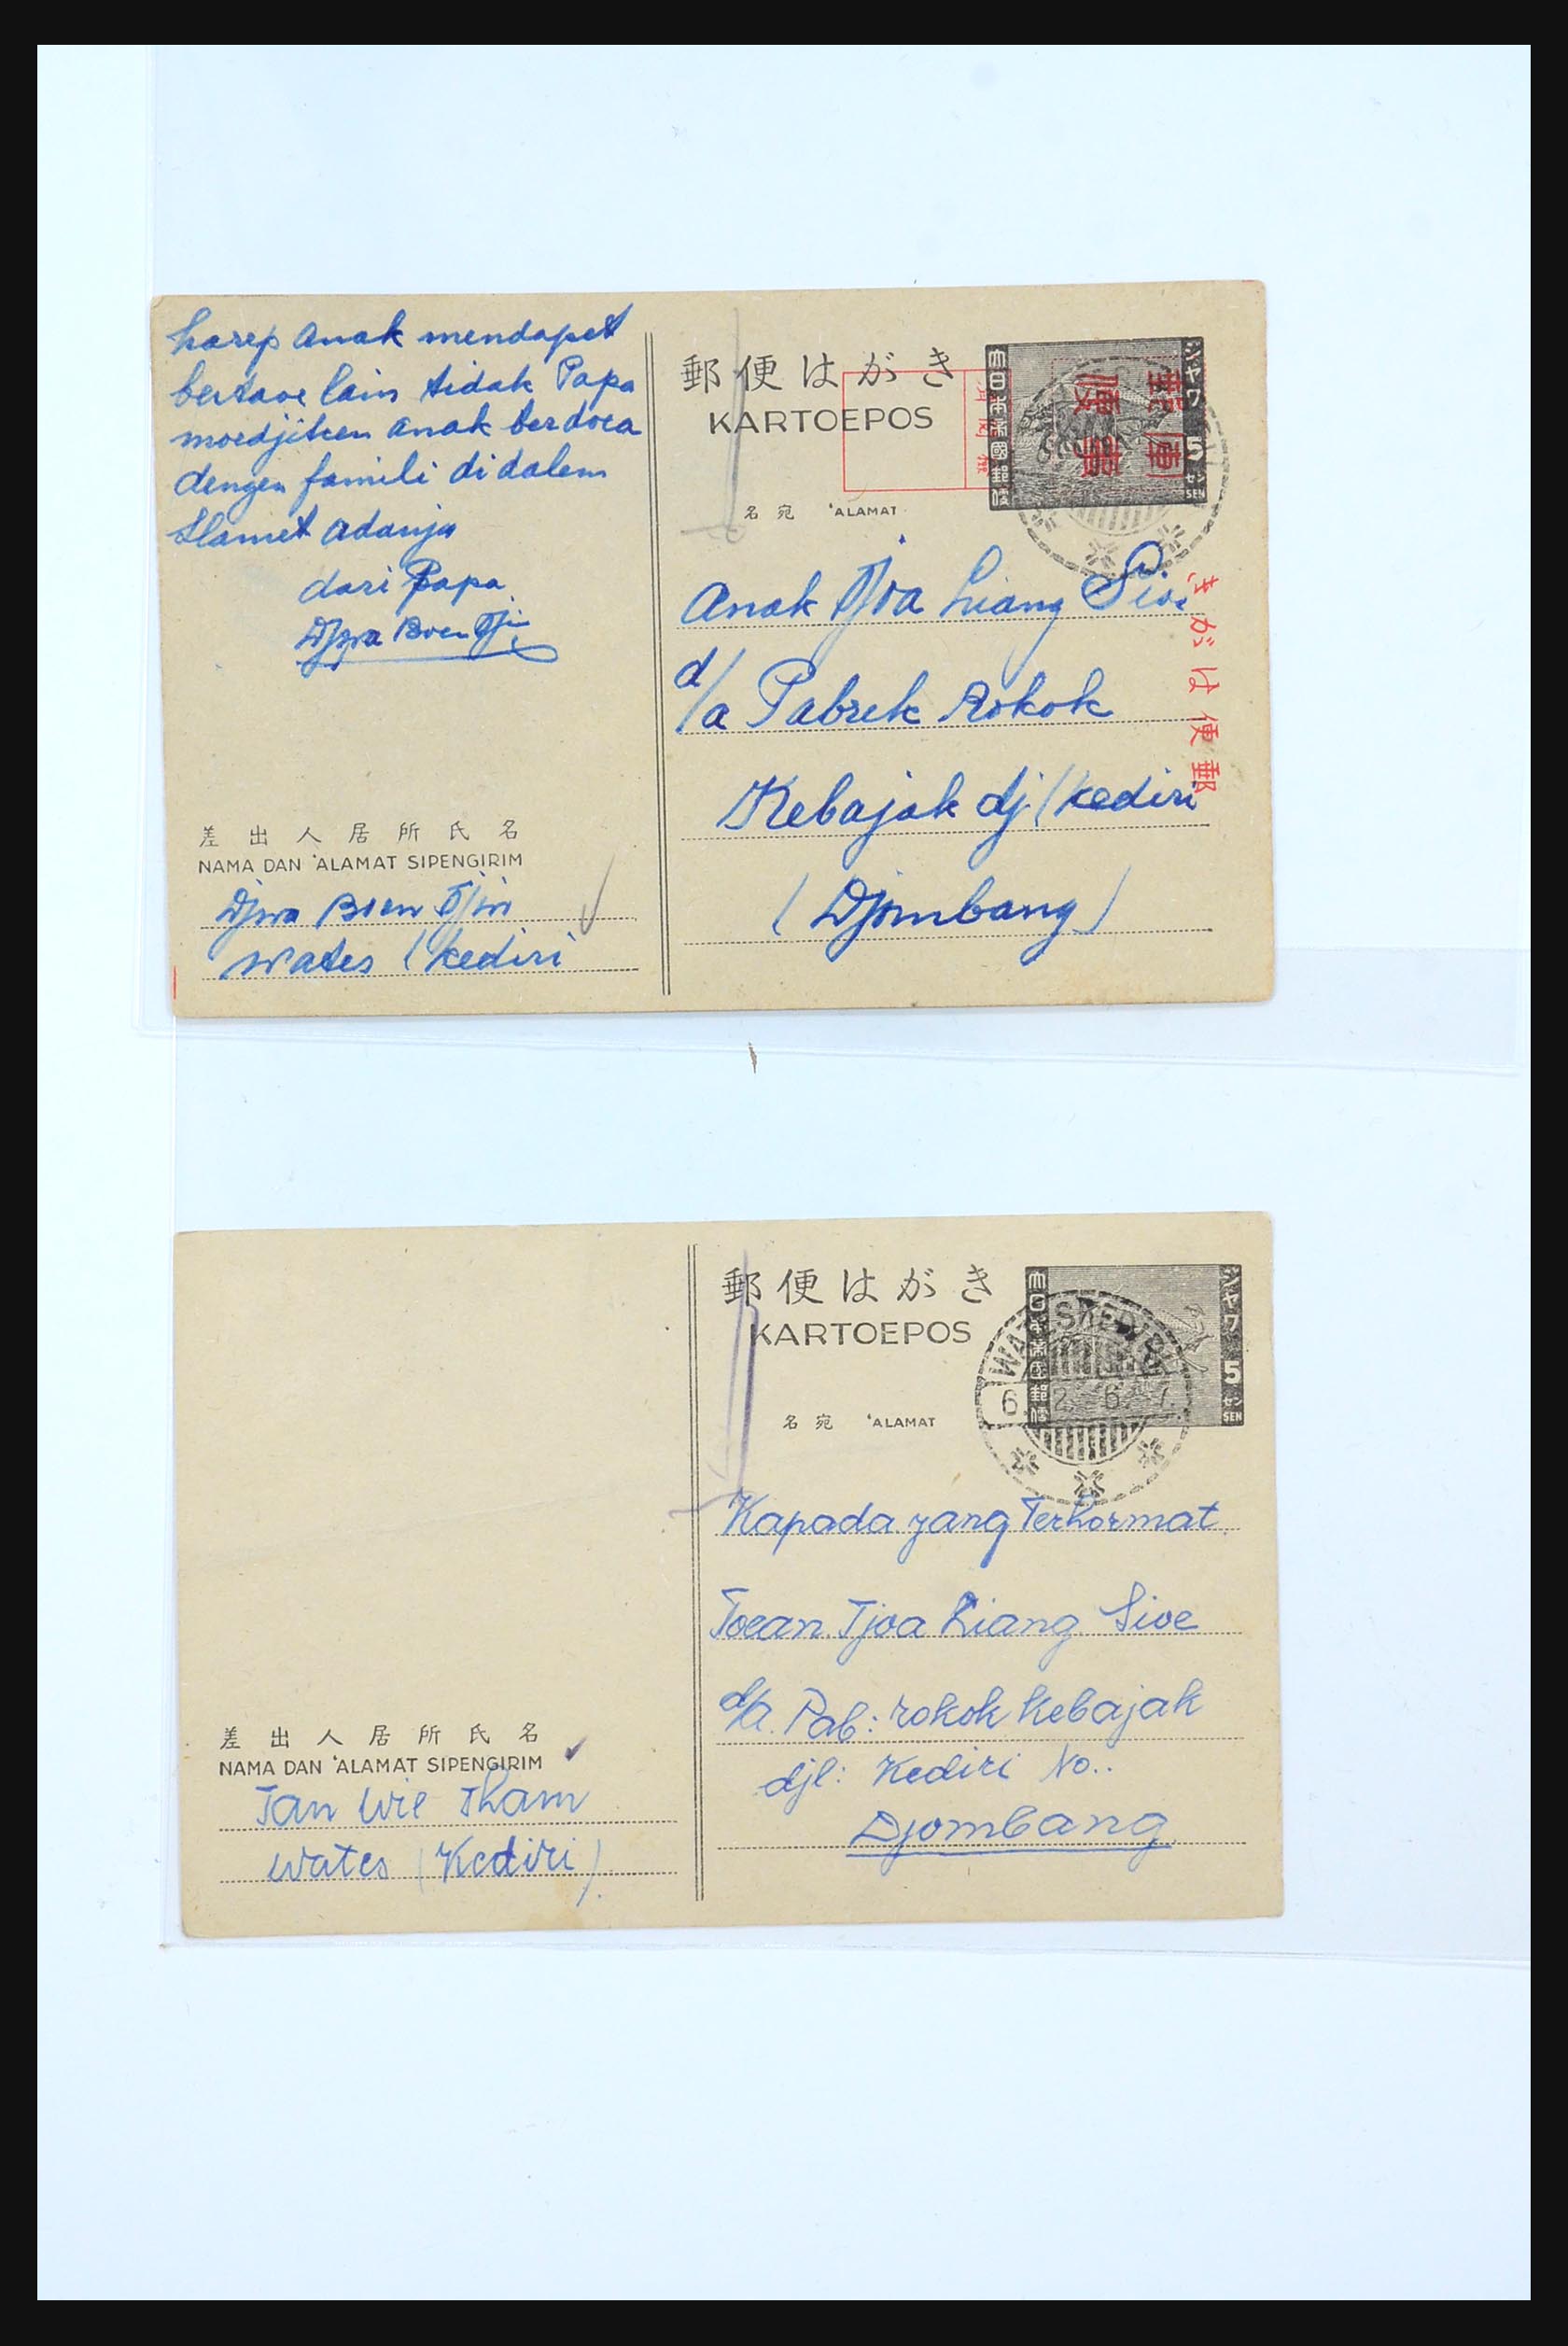 harep anak mendapet
bertaoe lain tidak Papa
moedjiken anak berdoea
dengen famili di dalem
slamet adanja
dari Papa
Djwa Boen Tjin
差出人居所氏名
NAMA DAN 'ALAMAT SIPENGIRIM
Djwa Boen Tjin
wates (kediri
郵便はがき
KARTOEPOS
名宛 'ALAMAT
大日本帝國郵便
ジャワ 5 セン SEN
郵便はがき
Anak Tjoa Liang Sioe
d/a Pabrek Rokok
Kebajak dj/kediri
(Djombang)
郵便はがき
KARTOEPOS
名宛 'ALAMAT
大日本帝國郵便
ジャワ 5 セン SEN
WATES KEDIRI
6. 2. 6. 7.
Kapada yang Terhormat
Toean Tjoa Liang Sioe
d/a. Pab: rokok Kebajak
djl: Kediri No..
Djombang
差出人居所氏名
NAMA DAN 'ALAMAT SIPENGIRIM
Tan Wie Tham
wates (Kediri).